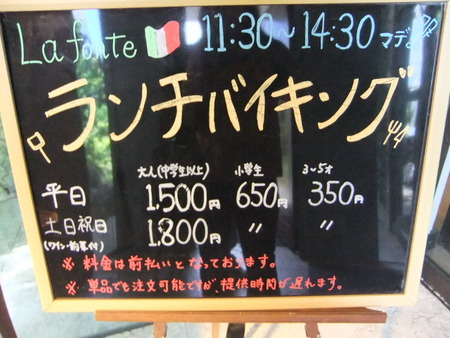 La fonte 11:30〜14:30マデ
ランチバイキング
大人(中学生以上) 小学生 3〜5才
平日 1,500円 650円 350円
土日祝日 1,800円 〃 〃
(ワイン・前菜付)
※ 料金は前払いとなっております。
※ 単品でも注文可能ですが、提供時間が遅れます。